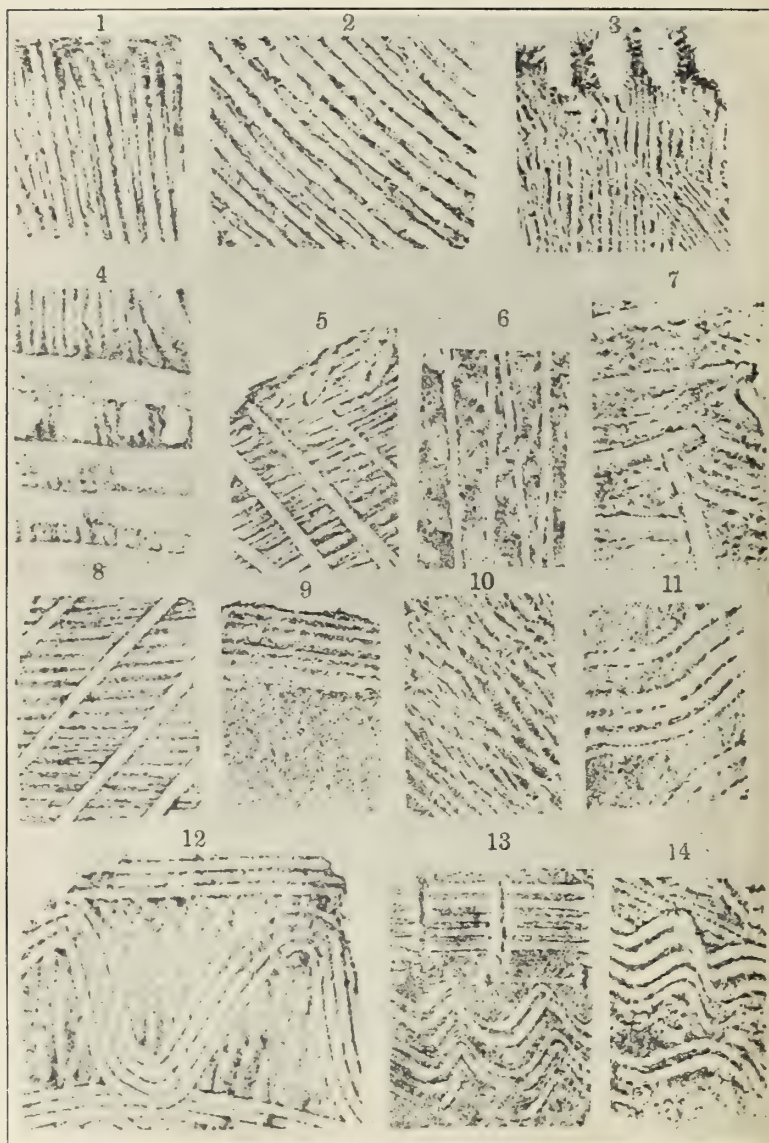 1 2 3
4 5 6 7
8 9 10 11
12 13 14